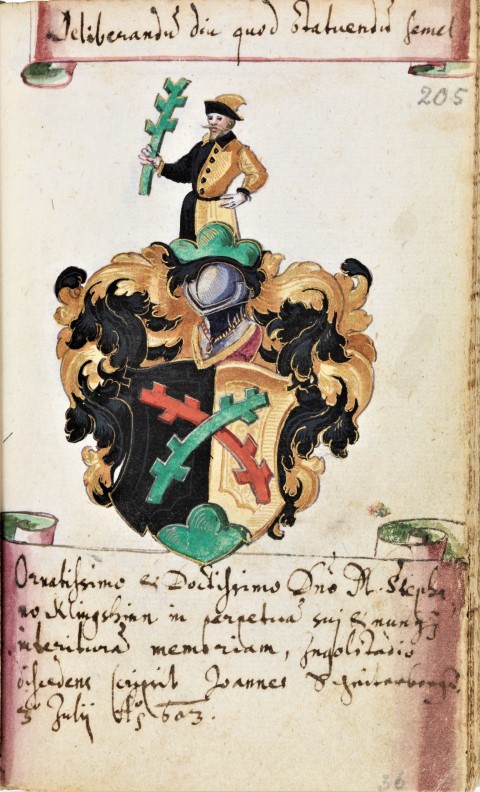 Deliberandū diu quod statuendū semel
205
Ornatissimo et Doctissimo Dnō M. Stepha
no Klingshirn in perpetuā sui et nunq̄
interiturā memoriam, Ingolstadio
discedens scripsit Joannes
3 Julij Aō 1603.
36